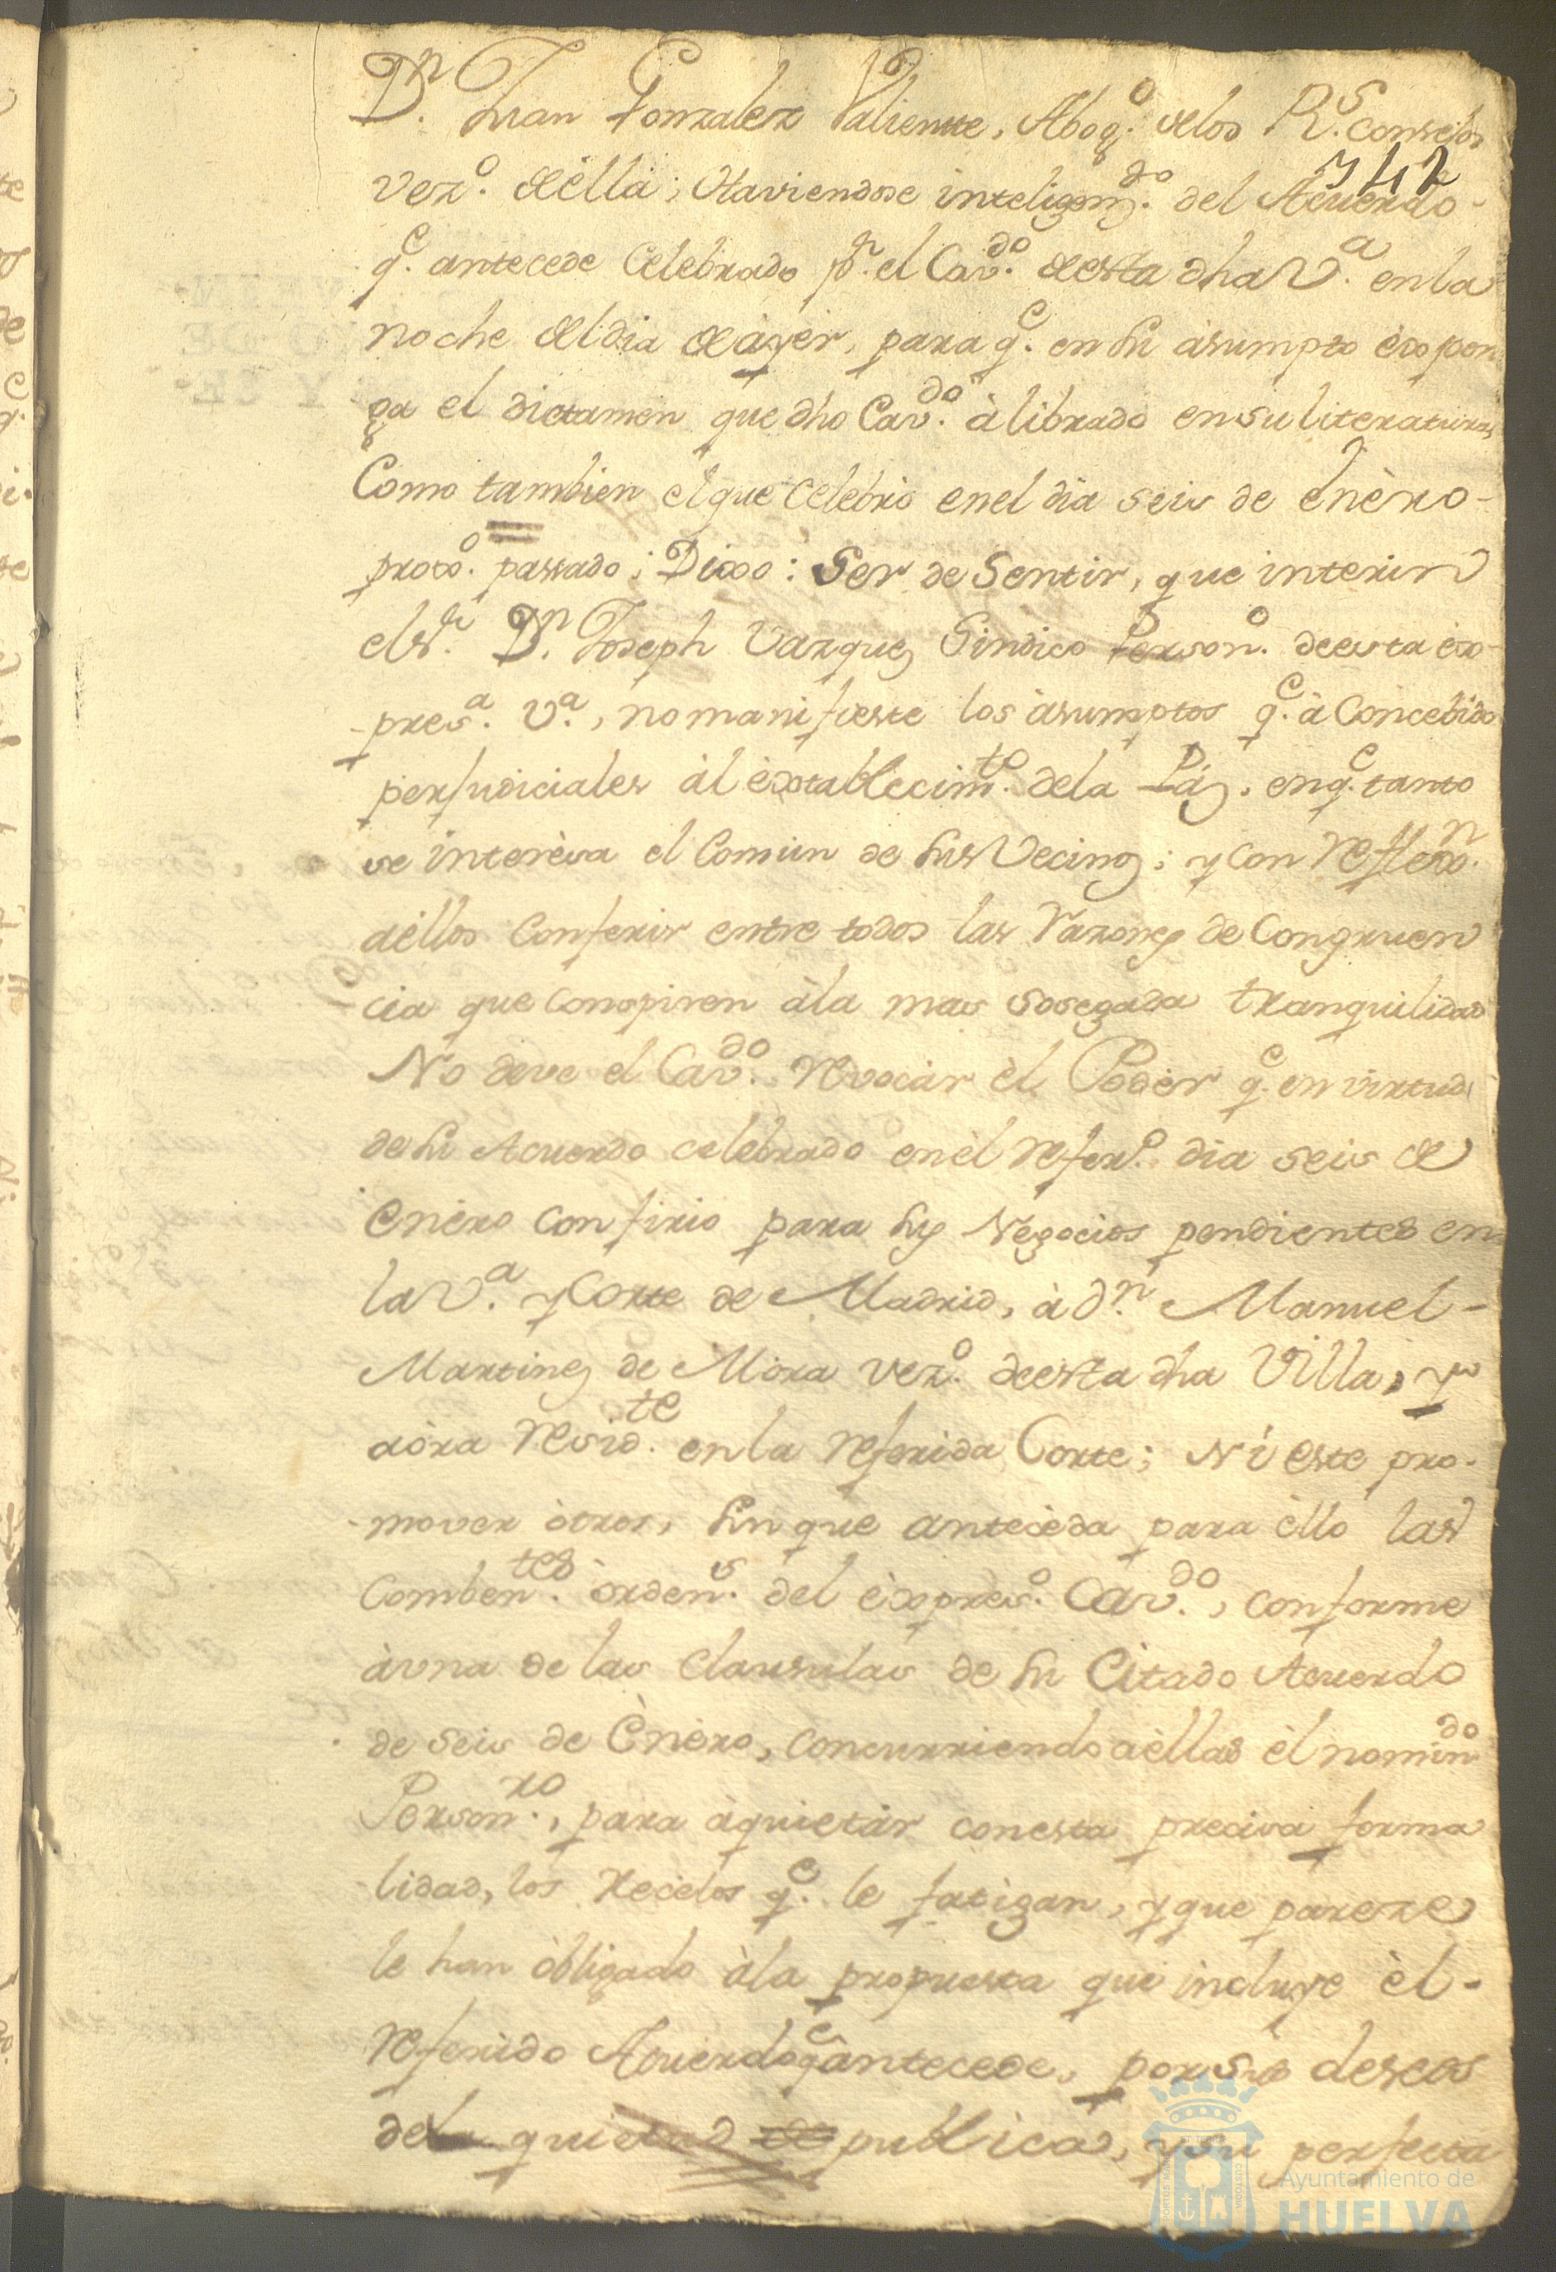 Dn. Juan Gonzalez Valiente, Abogo. delos Rs. consejos
342
vezo. de èlla; Haviendose inteligendo. del Acuerdo-
qe. antecede Celebrado pr. el Cavdo. de esta dha Va. en la
noche del dia de àyèr, para qe. en su àsumpto èxpon
ga el dictamen que dho Cavdo. à librado en su literatura,
Como tambien el que celebrò en el dia seis de Enèro-
proxo. passado; Dixo: Ser de Sentir, que interin
el Sr. Dn. Joseph Vazquez Sindico Persono. de esta èx-
presa. Va., no manifieste los àsumptos qe. à Concebido
perjudiciales àl èxtablecimto. dela Páz. en qe. tanto
se interèsa el Comun de sus Vecinos; y con reflexn.
aèllos Conferir entre todos las razones de Congruen
cia que conspiren àla mas sosegada tranquilidad
No deve el Cavdo. revocàr èl Podèr qe. en virtud
de su Acuerdo celebrado en èl refero. dia seis de
Enèro confirio para sus Negocios pendientes en
la Va. y Corte de Madrid, à dn. Manuel-
Martinez de Mora vezo. de esta dha Villa, y
aòra residte. en la referida Corte; Ni este pro-
mover òtros, sin que anteceda para èllo las
Combentes. òrdens. del èxpreso. Cavdo., conforme
àvna de las Clausulas de su Citado Acuerdo
de seis de Enèro, concurriendo aèllas èl nomindo.
Personro., para àquietàr con esta precisa forma
lidad, los recelos qe. le fatigan, y que pareze
le han òbligado àla propuesta que incluye èl-
referido Acuerdo qe àntecede, por sus deseos
de la quietud de publica, y su perfecta
Ayuntamiento de
HUELVA